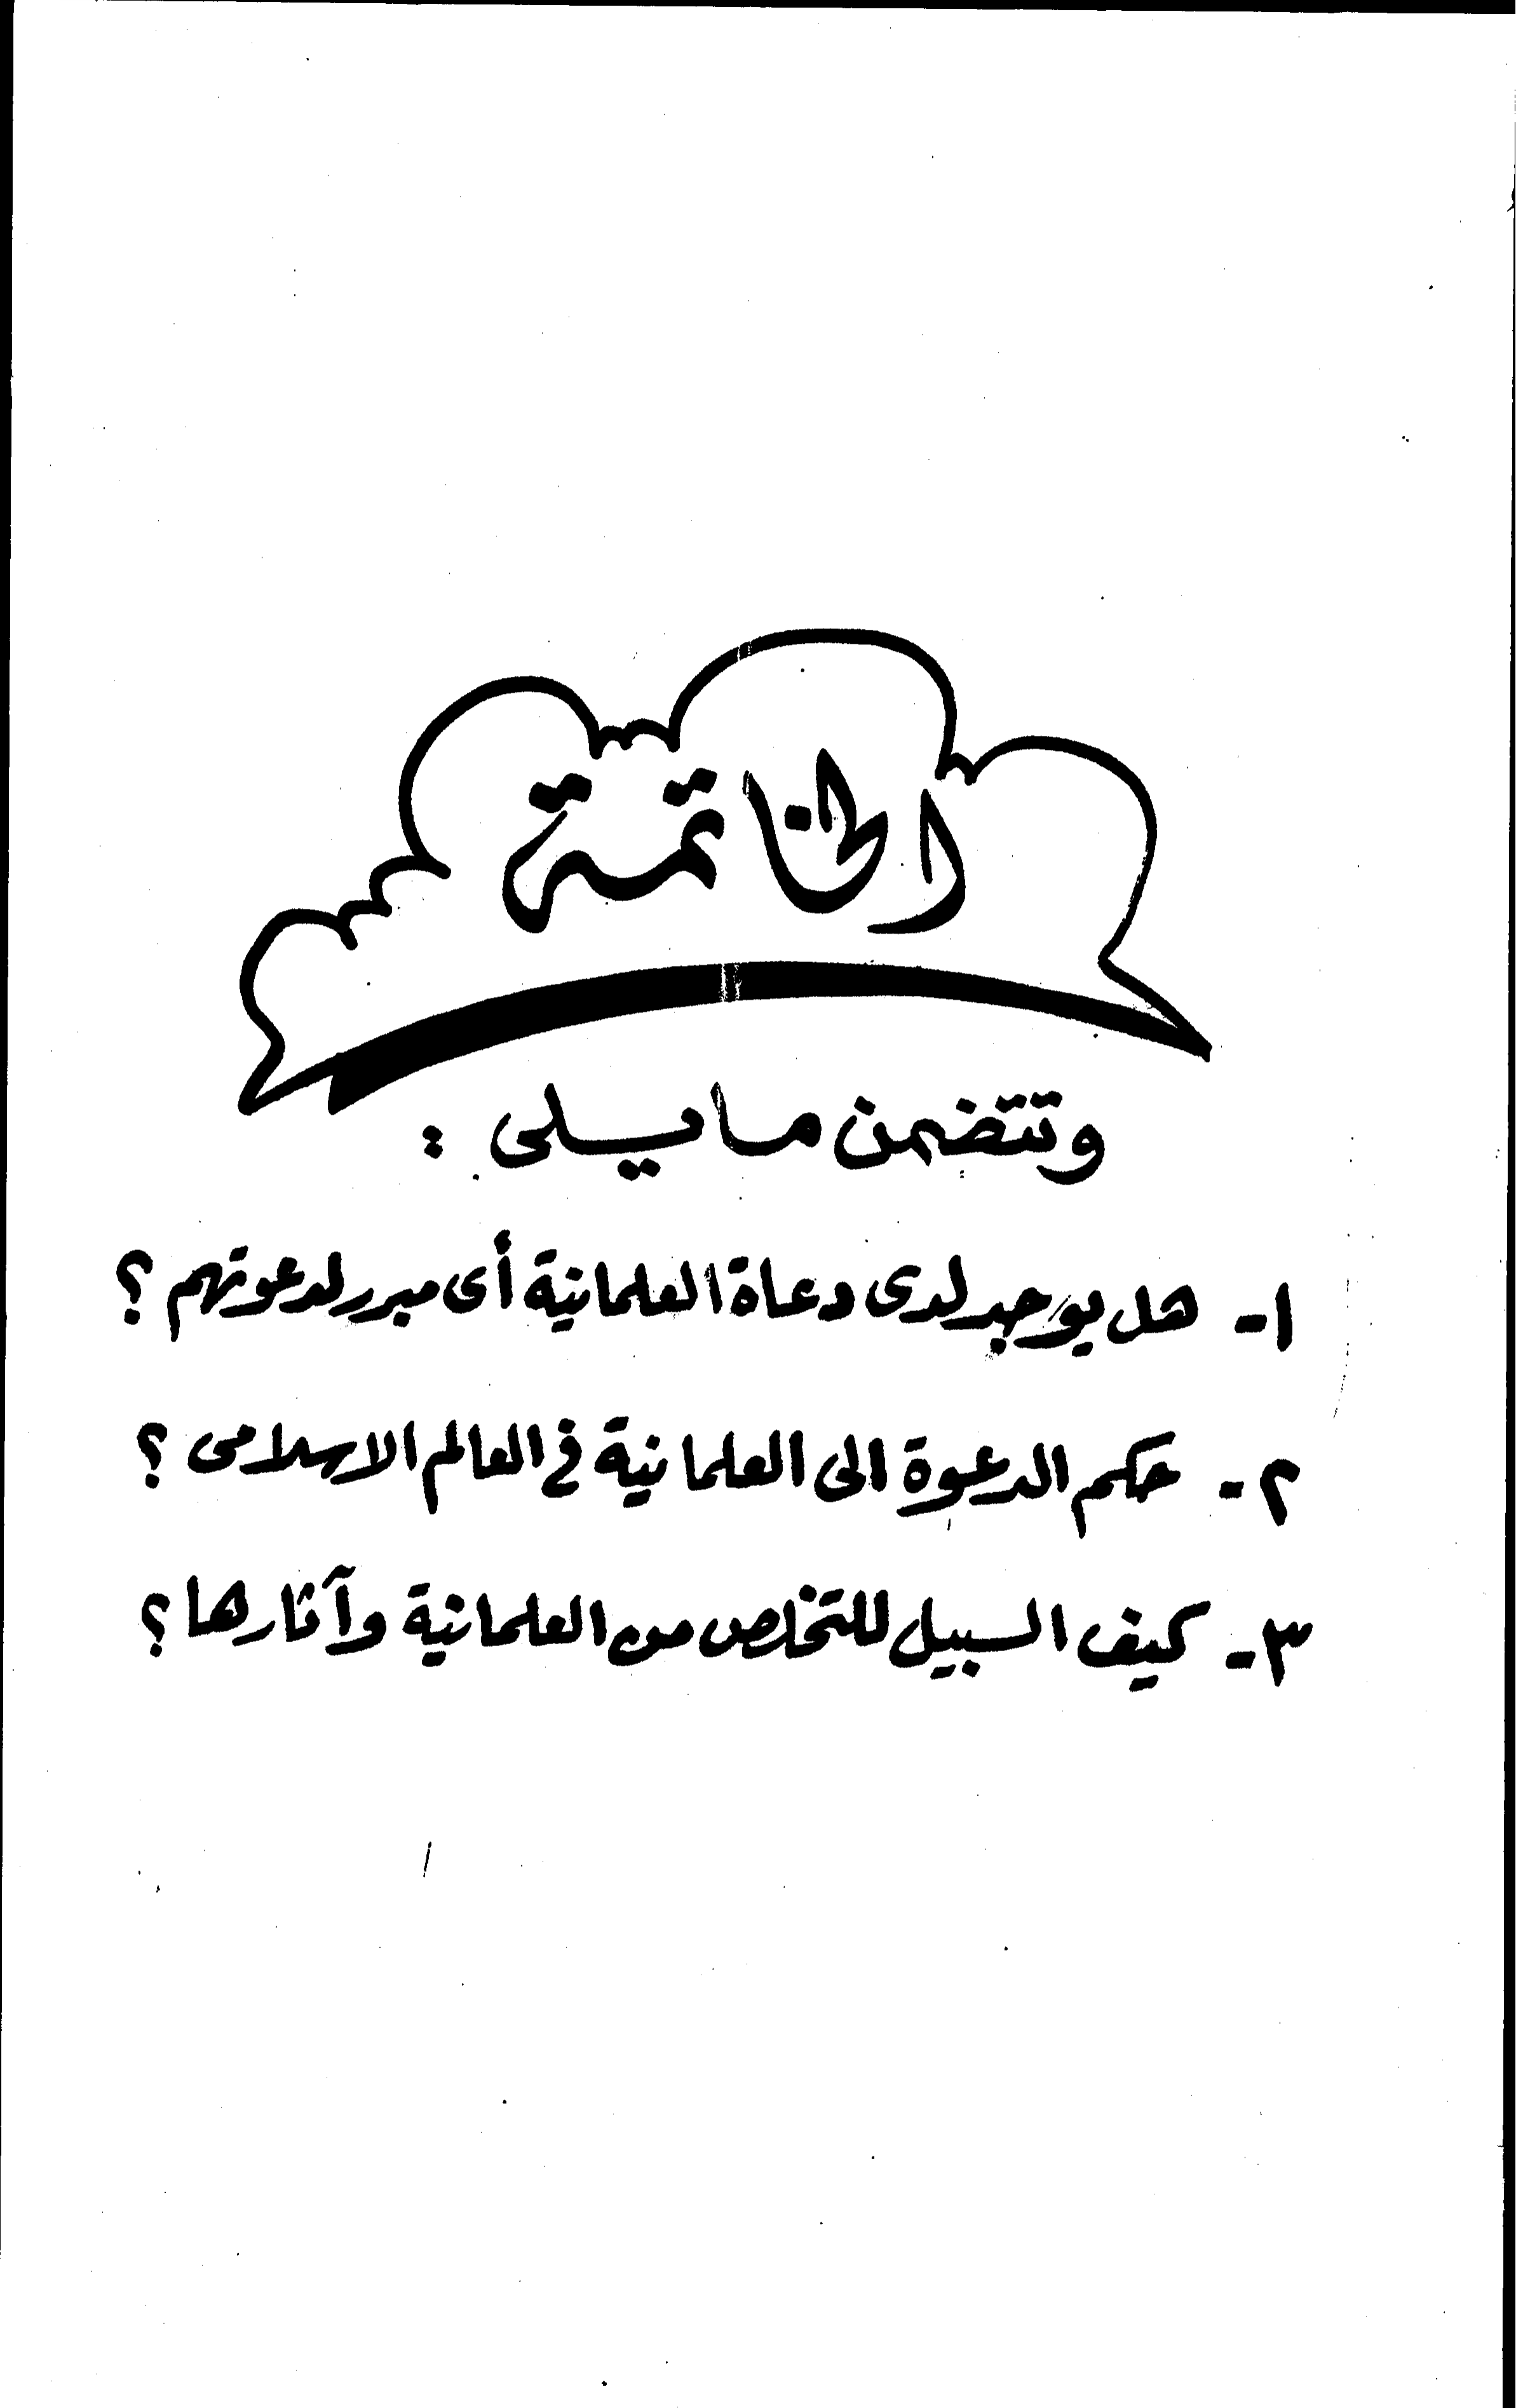 الخاتمة
وتتضمن ما يلى :
١- هل يوجد لدى دعاة العلمانية أى مبرر لدعوتهم ؟
٢- حكم الدعوة الى العلمانية في العالم الاسلامى ؟
٣- كيف السبيل للتخلص من العلمانية وآثارها ؟